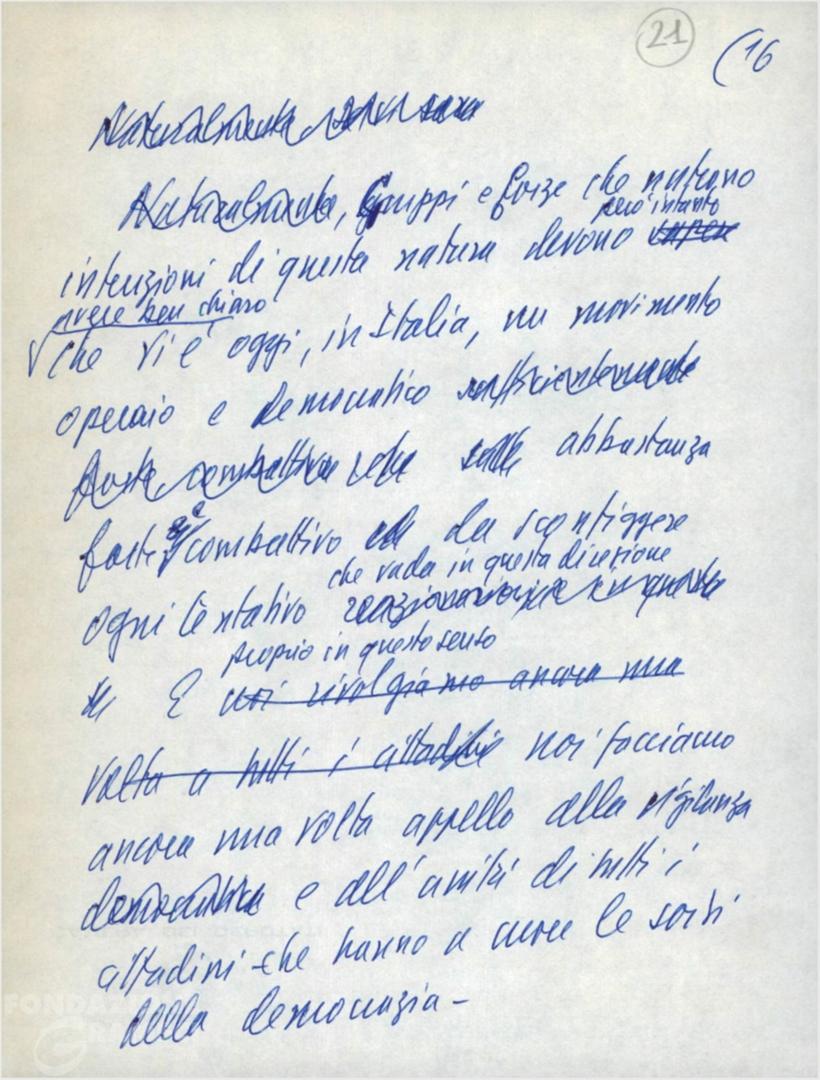 21
(16
Naturalmente
Naturalmente, Gruppi e forze che nutrono
però intanto
intenzioni di questa natura devono sapere
avere ben chiaro
che vi è oggi, in Italia, un movimento
operaio e democratico sufficientemente
forte combattivo abbastanza
forte e combattivo da sconfiggere
che vada in questa direzione
ogni tentativo
proprio in questo senso
E noi rivolgiamo ancora una
volta a tutti i cittadini noi facciamo
ancora una volta appello alla vigilanza
democratica e all'unità di tutti i
cittadini che hanno a cuore le sorti
della democrazia -
FONDAZIONE